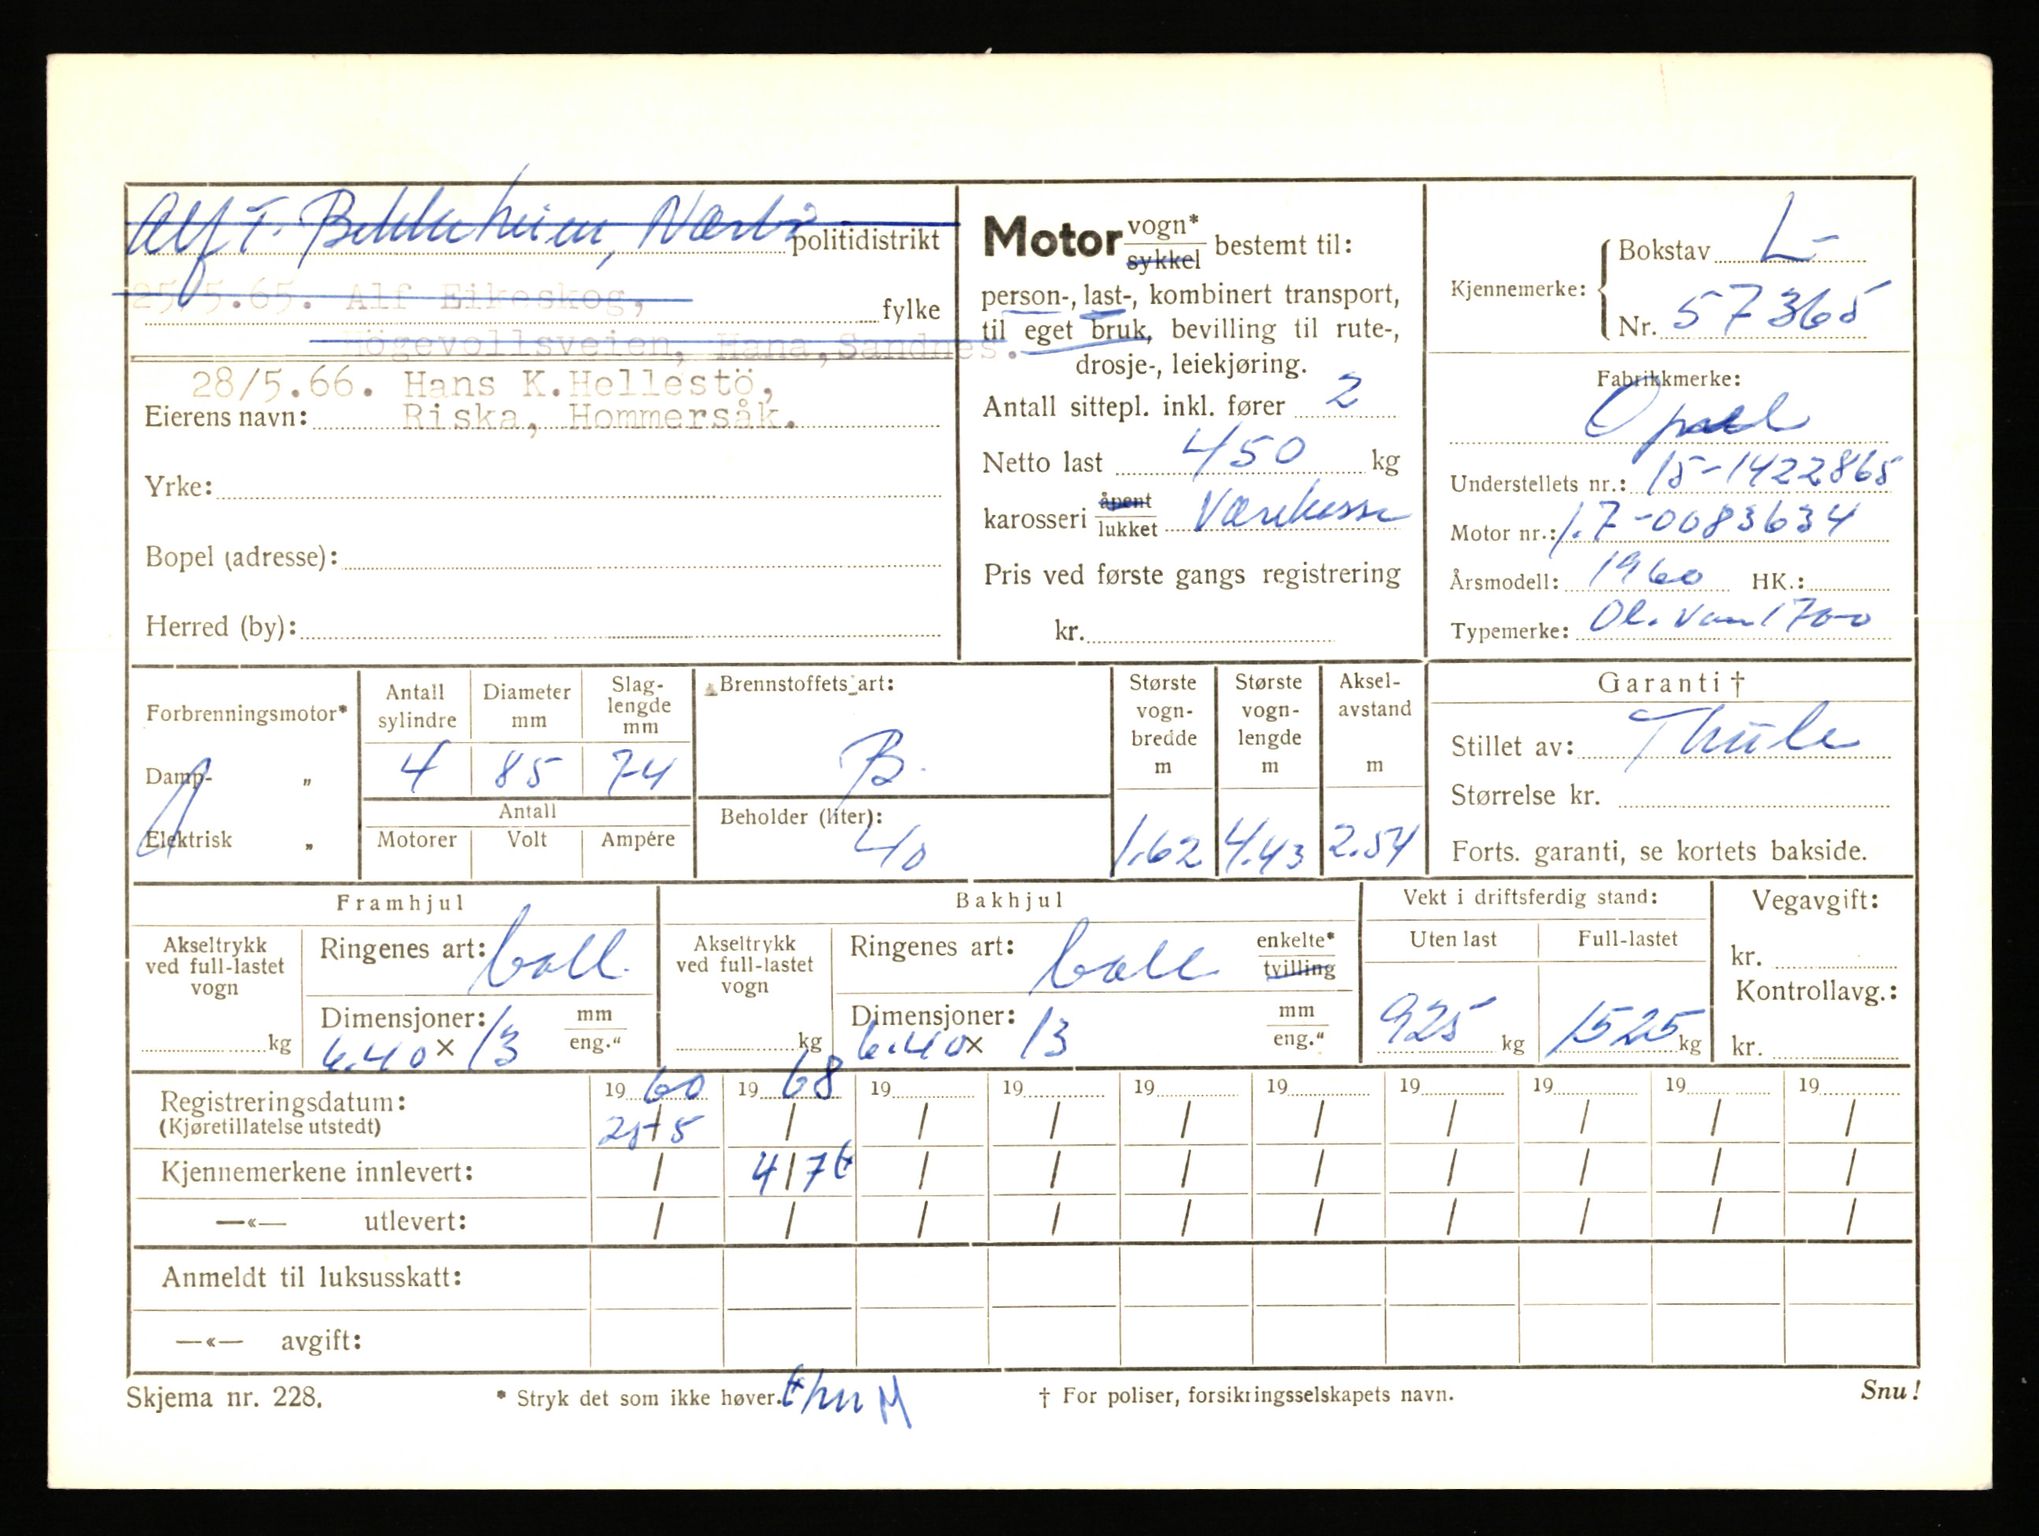 Alf T. Nærbø politidistrikt
25/5.65. Alf Eikeskog,
fylke
Högevollsveien, Hana, Sandnes.
28/5.66. Hans K.Hellestö,
Eierens navn: Riska, Hommersåk.
Yrke:
Bopel (adresse):
Herred (by):
Motor vogn* sykkel bestemt til:
person-, last-, kombinert transport,
til eget bruk, bevilling til rute-,
drosje-, leiekjøring.
Antall sittepl. inkl. fører 2
Netto last 450 kg
karosseri åpent lukket
Pris ved første gangs registrering
kr.
Kjennemerke: Bokstav L-
Nr. 57365
Fabrikkmerke:
Opel
Understellets nr.: 15-1422865
Motor nr.: 1.7-0083634
Årsmodell: 1960 HK.:
Typemerke: Ol. Van 1700
Forbrenningsmotor*
Damp- „
Elektrisk „
Antall sylindre Diameter mm Slag-lengde mm
4 85 74
Antall
Motorer Volt Ampére
Brennstoffets art:
B.
Beholder (liter):
40
Største vogn-bredde m
1.62
Største vogn-lengde m
4.43
Aksel-avstand m
2.54
Garanti †
Stillet av: Thule
Størrelse kr.
Forts. garanti, se kortets bakside.
Framhjul
Akseltrykk ved full-lastet vogn
kg
Ringenes art: ball.
Dimensjoner: mm eng."
6.40 × 13
Bakhjul
Akseltrykk ved full-lastet vogn
kg
Ringenes art: ball enkelte* tvilling
Dimensjoner: mm eng."
6.40 × 13
Vekt i driftsferdig stand:
Uten last Full-lastet
925 kg 1525 kg
Vegavgift:
kr.
Kontrollavg.:
kr.
19 60 19 68 19 19 19 19 19 19 19 19
Registreringsdatum:
(Kjøretillatelse utstedt) 25/5 / / / / / / / / /
Kjennemerkene innlevert: / 4/7 t / / / / / / / /
—«— utlevert: / / / / / / / / / /
Anmeldt til luksusskatt:
—«— avgift:
Skjema nr. 228. * Stryk det som ikke høver. † For poliser, forsikringsselskapets navn. Snu!